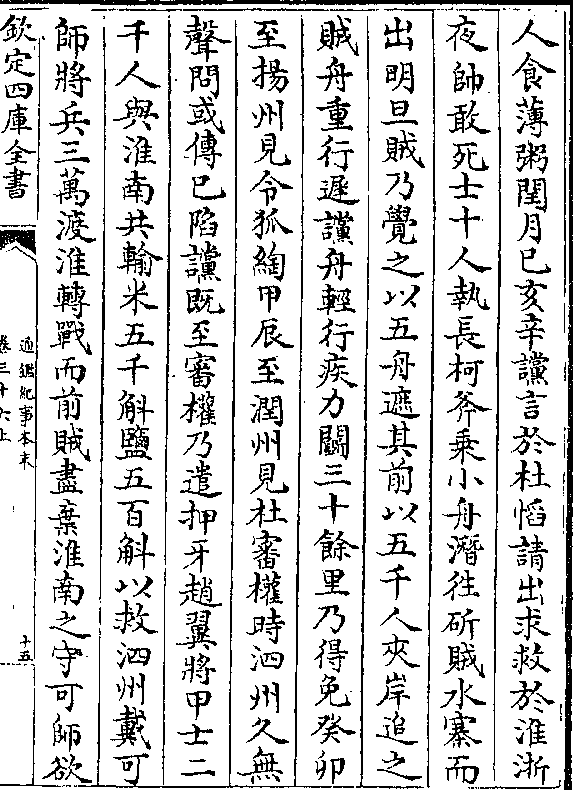 人食薄粥閏月己亥辛讜言於杜慆請出求救於淮浙
夜帥敢死士十人執長柯斧乗小舟潛往斫賊水寨而
出明旦賊乃覺之以五舟遮其前以五千人夾岸追之
賊舟重行遲讜舟輕行疾力鬬三十餘里乃得免癸卯
至揚州見令狐綯甲辰至潤州見杜審權時泗州久無
聲問或傳已陷讜既至審權乃遣押牙趙翼將甲士二
千人與淮南共輸米五千斛鹽五百斛以救泗州戴可
師將兵三萬渡淮轉戰而前賊盡棄淮南之守可師欲
欽定四庫全書
通鑑紀事本末
卷三十六上
十五